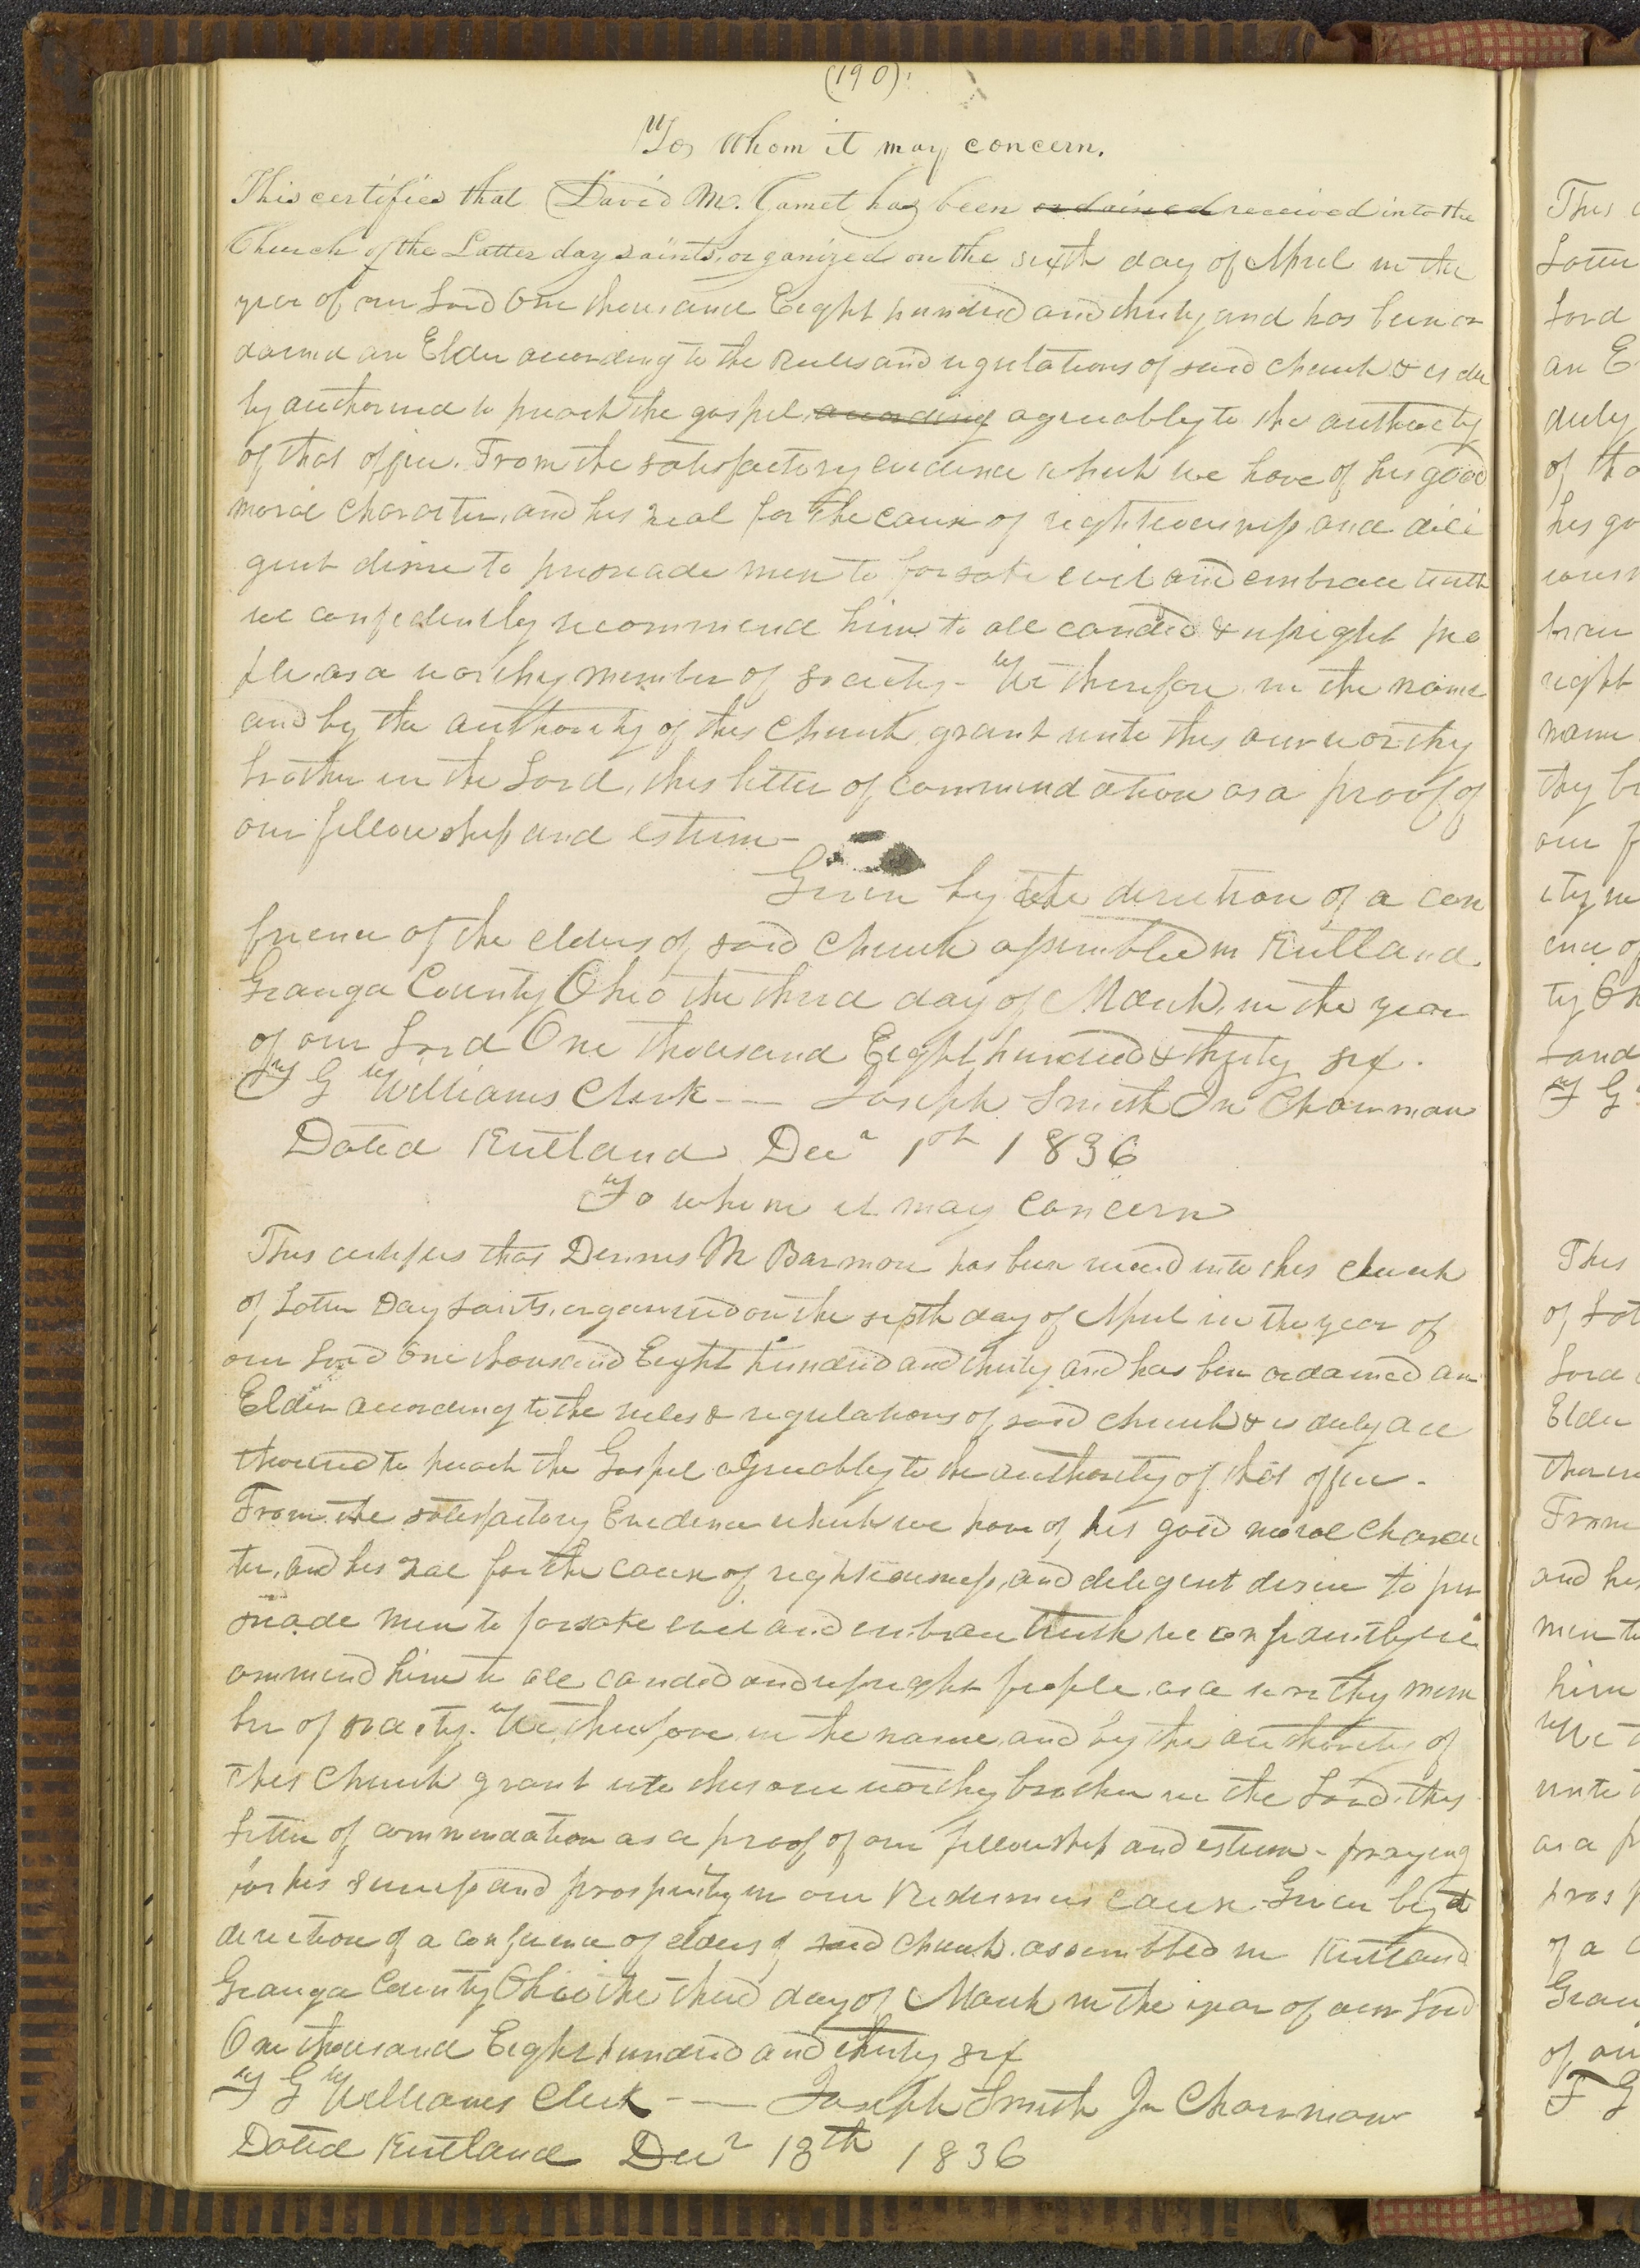 (190)
To Whom it may concern.
This certifies that David M. Gamet has been ordained received into the
Church of the Latter day saints, organized on the sixth day of April in the
year of our Lord One thousand Eight hundred and thirty, and has been or
dained an Elder according to the Rules and regulations of said church & is du
ly authorised to preach the gospel, according agreeably to the authority
of that office. From the satisfactory evidence which we have of his good
moral character, and his zeal for the cause of righteousness and dili
gent desire to persuade men to forsake evil and embrace truth
we confidently recommend him to all candid & upright peo
ple, as a worthy member of society - We therefore in the name
and by the authority of this church, grant unto this our worthy
brother in the Lord, this letter of commendation as a proof of
our fellowship and esteem -
Given by the direction of a con
frence of the elders of said church assembled in Kirtland
Geauga County Ohio the third day of March, in the year
of our Lord One thousand Eight hundred & thirty six.
F G Williams Clerk -- Joseph Smith Jn Chairman
Dated Kirtland Decr 1st 1836
To whom it may concern
This certifies that Dennis M Barmore has been receied into this church
of Latter Day Saints, organized on the sixth day of April in the year of
our Lord One thousand Eight hundred and thirty and has ben ordained an
Elder according to the rules & regulations of said church & is duly au
thorised to preach the Gospel agreeably to the authority of that office -
From the satisfactory Evedence which we have of his good moral charac
ter, and his zeal for the cause of righteousness, and diligent desire to per
suade men to forsake evil and embrace truth we confidently rec
ommend him to all candid and upright people, as a worthy mem
ber of society. We, therefore, in the name, and by the authority of
this church grant unto this our worthy brother in the Lord, this
letter of commendation as a proof of our fellowship and esteem - praying
for his success and prosperity in our Redeemers cause. Given by
direction of a conference of elders of said church, assembled in Kirtland
Geauga County Ohio the third day of March in the year of our Lord
One thousand Eight hundred and thirty six
F G Williams Clerk -- Joseph Smith Jn Chairman
Dated Kirtland Decr 18th 1836